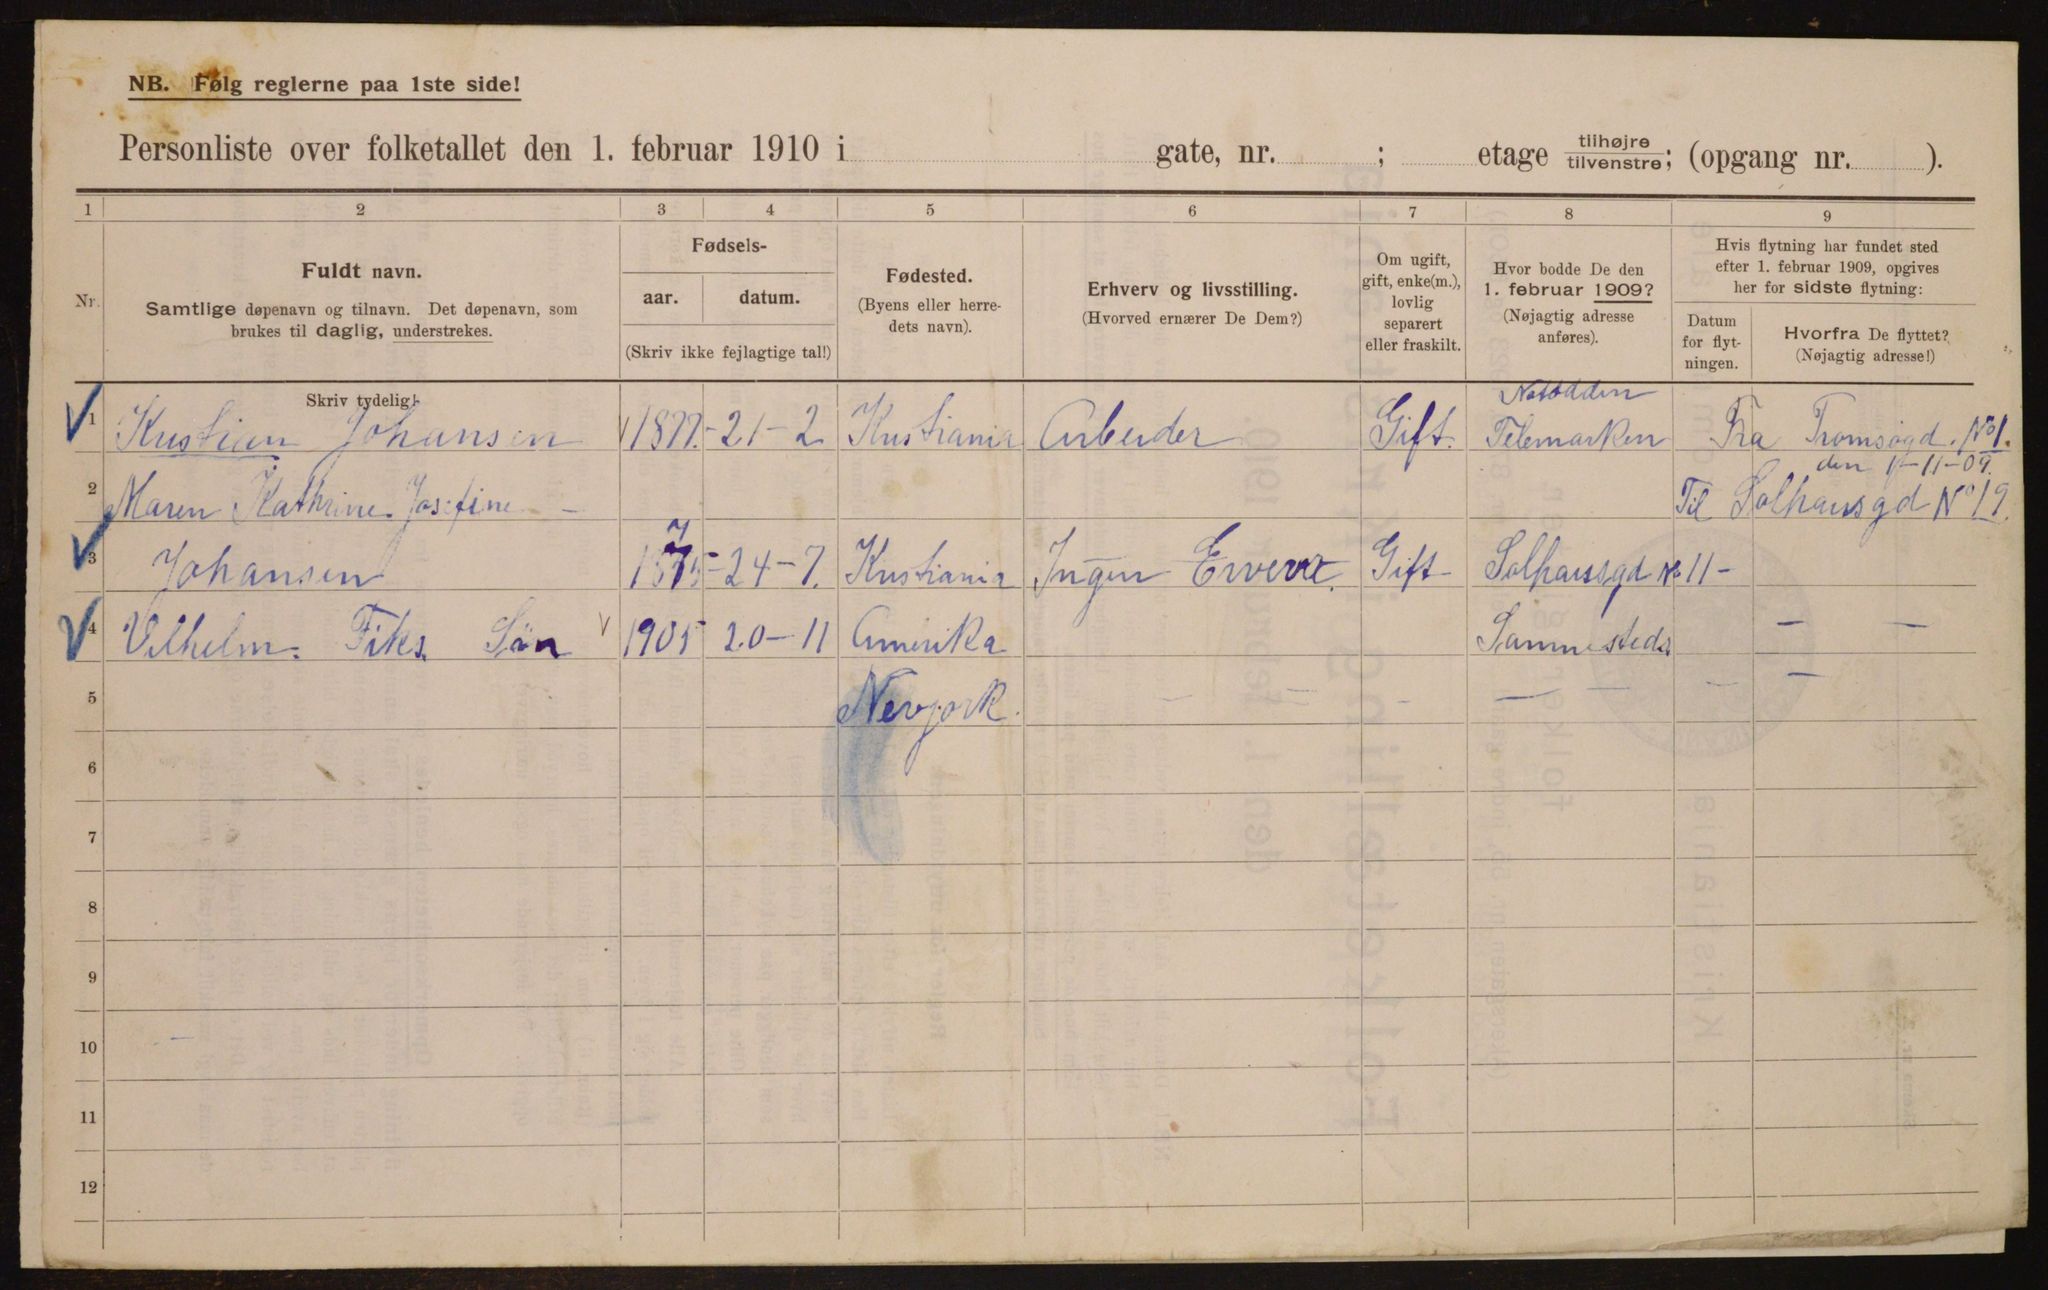 NB. Følg reglerne paa 1ste side!
Personliste over folketallet den 1. februar 1910 i gate, nr. ; etage tilhøjre tilvenstre; (opgang nr. ).
1 2 3 4 5 6 7 8 9
Nr.
Fuldt navn.
Samtlige døpenavn og tilnavn. Det døpenavn, som
brukes til daglig, understrekes.
Fødsels-
aar. datum.
(Skriv ikke fejlagtige tal!)
Fødested.
(Byens eller herre-
dets navn).
Erhverv og livsstilling.
(Hvorved ernærer De Dem?)
Om ugift,
gift, enke(m.),
lovlig
separert
eller fraskilt.
Hvor bodde De den
1. februar 1909?
(Nøjagtig adresse
anføres).
Hvis flytning har fundet sted
efter 1. februar 1909, opgives
her for sidste flytning:
Datum
for flyt-
ningen.
Hvorfra De flyttet?
(Nøjagtig adresse!)
Skriv tydelig!
Notodden
1 Kristian Johansen 1877 - 21 - 2 Kristiania Arbeider Gift. Telemarken Fra Tromsøgd. No 1.
den 1-11-09.
2 Maren Kathrine Josefine Til Solhausgd No 19.
3 Johansen 24 - 7. Kristiania Ingen Erverv. Gift Solhausgd No 11 -
4 Vilhelm. Fiks. Sön 1905 20 - 11 Amerika Sammesteds — —
5 Nevjork.
6
7
8
9
10
11
12